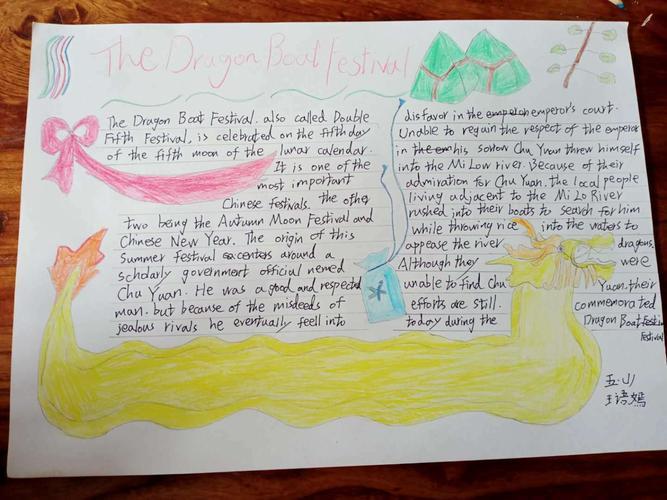 The Dragon Boat Festival
The Dragon Boat Festival. also called Double
Fifth Festival, is celebrated on the fifth day
of the fifth moon of the lunar calendar.
It is one of the
most important
Chinese festivals. the other
two being the Autumn Moon Festival and
Chinese New Year. The origin of this
summer festival centers around a
scholarly government official nemed
Chu Yuan. He was a good and respected
man. but because of the misdeeds of
jealous rivals he eventually feell into
disfavor in the emperor's court.
Unable to regain the respect of the emperor
in his sorrow Chu Yuan threw himself
into the Mi Low river. Because of their
admiration for Chu Yuan. the local people
living adjacent to the Mi Lo River
rushed into their boats to search for him
while throwing rice into the waters to
appease the river dragons.
Although they were
unable to find Chu Yuan. their
efforts are still commemorated
today during the Dragon Boat Festival
festival
五.山